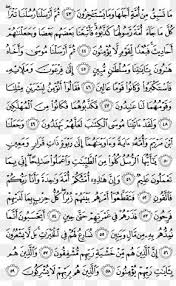 مَا تَسْبِقُ مِنْ أُمَّةٍ أَجَلَهَا وَمَا يَسْتَـْٔخِرُونَ ٤٣ ثُمَّ أَرْسَلْنَا رُسُلَنَا تَتْرَا
كُلَّ مَا جَآءَ أُمَّةً رَّسُولُهَا كَذَّبُوهُ فَأَتْبَعْنَا بَعْضَهُم بَعْضًا وَجَعَلْنَٰهُمْ
أَحَادِيثَ فَبُعْدًا لِّقَوْمٍ لَّا يُؤْمِنُونَ ٤٤ ثُمَّ أَرْسَلْنَا مُوسَىٰ وَأَخَاهُ
هَٰرُونَ بِـَٔايَٰتِنَا وَسُلْطَٰنٍ مُّبِينٍ ٤٥ إِلَىٰ فِرْعَوْنَ وَمَلَإِيْهِۦ فَٱسْتَكْبَرُوا۟
وَكَانُوا۟ قَوْمًا عَالِينَ ٤٦ فَقَالُوٓا۟ أَنُؤْمِنُ لِبَشَرَيْنِ مِثْلِنَا
وَقَوْمُهُمَا لَنَا عَٰبِدُونَ ٤٧ فَكَذَّبُوهُمَا فَكَانُوا۟ مِنَ ٱلْمُهْلَكِينَ
٤٨ وَلَقَدْ ءَاتَيْنَا مُوسَى ٱلْكِتَٰبَ لَعَلَّهُمْ يَهْتَدُونَ ٤٩ وَجَعَلْنَا ٱبْنَ
مَرْيَمَ وَأُمَّهُۥٓ ءَايَةً وَءَاوَيْنَٰهُمَآ إِلَىٰ رَبْوَةٍ ذَاتِ قَرَارٍ وَمَعِينٍ
٥٠ يَٰٓأَيُّهَا ٱلرُّسُلُ كُلُوا۟ مِنَ ٱلطَّيِّبَٰتِ وَٱعْمَلُوا۟ صَٰلِحًا إِنِّى بِمَا
تَعْمَلُونَ عَلِيمٌ ٥١ وَإِنَّ هَٰذِهِۦٓ أُمَّتُكُمْ أُمَّةً وَٰحِدَةً وَأَنَا۠ رَبُّكُمْ
فَٱتَّقُونِ ٥٢ فَتَقَطَّعُوٓا۟ أَمْرَهُم بَيْنَهُمْ زُبُرًا كُلُّ حِزْبٍۭ بِمَا لَدَيْهِمْ
فَرِحُونَ ٥٣ فَذَرْهُمْ فِى غَمْرَتِهِمْ حَتَّىٰ حِينٍ ٥٤ أَيَحْسَبُونَ أَنَّمَا
نُمِدُّهُم بِهِۦ مِن مَّالٍ وَبَنِينَ ٥٥ نُسَارِعُ لَهُمْ فِى ٱلْخَيْرَٰتِ بَل لَّا يَشْعُرُونَ
٥٦ إِنَّ ٱلَّذِينَ هُم مِّنْ خَشْيَةِ رَبِّهِم مُّشْفِقُونَ ٥٧ وَٱلَّذِينَ هُم
بِـَٔايَٰتِ رَبِّهِمْ يُؤْمِنُونَ ٥٨ وَٱلَّذِينَ هُم بِرَبِّهِمْ لَا يُشْرِكُونَ ٥٩